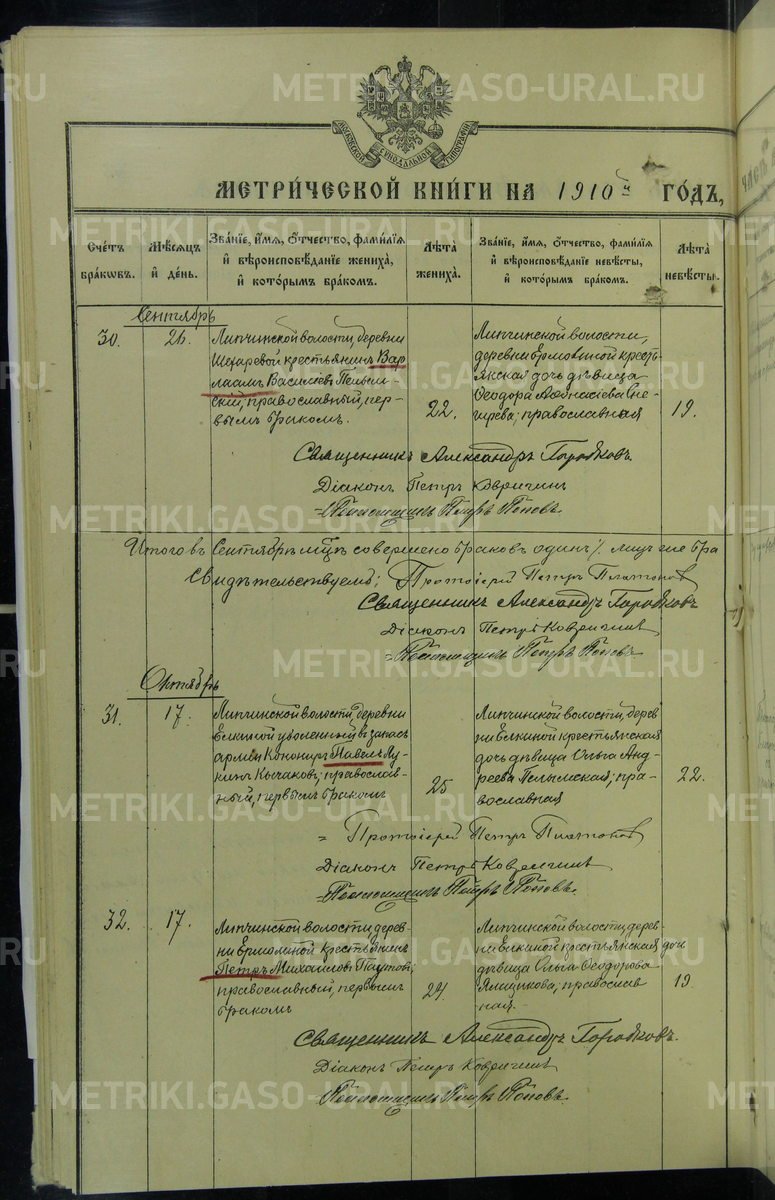 МОСКОВСКОЙ СѴНОДАЛЬНОЙ ТИПОГРАФІИ
МЕТРИЧЕСКОЙ КНИГИ НА 1910й ГОДЪ,
Счетъ браковъ.
Мѣсяцъ и день.
Званіе, имя, отчество, фамилія и вѣроисповѣданіе жениха, и которымъ бракомъ.
Лѣта жениха.
Званіе, имя, отчество, фамилія и вѣроисповѣданіе невѣсты, и которымъ бракомъ.
Лѣта невѣсты.
Сентябрь
30.
26.
Липчинской волости, деревни
крестьянинъ Вар
лаамъ Васильевъ
православный, пер-
вымъ бракомъ.
22.
Липчинской волости,
деревни Ермолиной кресть-
янская дочь дѣвица
Ѳеодора Аѳанасіева Сне-
гирева, православная
19.
Священникъ Александръ Горбяковъ.
Діаконъ Петръ
Псаломщикъ Петръ Поповъ.
Итого въ Сентябрѣ м-цѣ совершено браковъ одинъ /.
Свидѣтельствуемъ: Протоіерей Петръ Платоновъ
Священникъ Александръ Горбяковъ
Діаконъ Петръ
Псаломщикъ Петръ Поповъ.
Октябрь
31.
17.
Липчинской волости, деревни
уволенный въ запасъ
арміи Павелъ Лу-
кинъ Кычаковъ; православ-
ный, первымъ бракомъ
25
Липчинской волости, дерев
ни крестьянская
дочь дѣвица Ольга Анд-
реева Пелымская; пра-
вославная
22.
Протоіерей Петръ Платоновъ
Діаконъ Петръ
Псаломщикъ Петръ Поповъ.
32.
17.
Липчинской волости дерев-
ни Ермолиной крестьянинъ
Петръ Михаиловъ
православный, первымъ
бракомъ
24.
Липчинской волости, дерев-
ни крестьянская дочь
дѣвица Ольга Ѳеодорова
православ
ная.
19.
Священникъ Александръ Горбяковъ.
Діаконъ Петръ
Псаломщикъ Петръ Поповъ.
METRIKI.GASO-URAL.RU